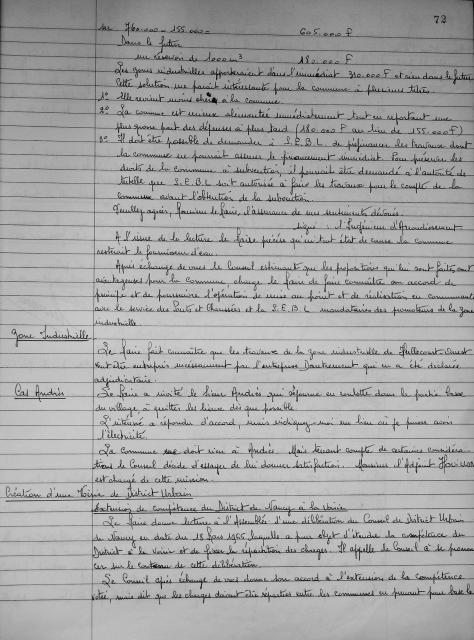 72
sur 760.000 - 155.000 = 605.000 F
Dans le futur
un réservoir de 1000 m³ 180.000 F
Les zones industrielles apporteraient dans l'immédiat 310.000 F et rien dans le futur
Cette solution me paraît intéressante pour la commune à plusieurs titres
1° Elle revient moins chère à la commune.
2° La commune est mieux alimentée immédiatement tout en reportant une
plus grosse part des dépenses à plus tard (180.000 F au lieu de 155.000 F)
3° Il doit être possible de demander à S.E.B.L. de préfinancer les travaux dont
la commune ne pourrait assurer le financement immédiat. Pour préserver les
droits de la commune à subvention, il pourrait être demandé à l'autorité de
tutelle que S.E.B.L soit autorisée à faire les travaux pour le compte de la
commune avant l'obtention de la subvention.
Veuillez agréer, Monsieur le Maire, l'assurance de mes sentiments dévoués.
Signé : l'Ingénieur d'Arrondissement
A l'issue de la lecture le Maire précise qu'en tout état de cause la commune
resterait le fournisseur d'eau.
Après échange de vues le Conseil estimant que les propositions qui lui sont faites sont
avantageuses pour la commune charge le Maire de faire connaître son accord de
principe et de poursuivre l'opération de mise au point et de réalisation en commun
avec le service des Ponts et Chaussées et la S.E.B.L mandataires des promoteurs de la zone
industrielle.
Zone Industrielle
Le Maire fait connaître que les travaux de la zone industrielle de Heillecourt-Ouest
vont être entrepris incessamment par l'entreprise qui en a été déclarée
adjudicataire.
Cas Andrès
Le Maire a invité le Sieur Andrès qui séjourne en roulotte dans la partie basse
du village à quitter les lieux dès que possible.
L'intéressé a répondu d'accord, mais indiquez moi un lieu où je puisse avoir
l'électricité.
La commune ne doit rien à Andrès. Mais tenant compte de certaines considéra
tions le Conseil décide d'essayer de lui donner satisfaction. Monsieur l'Adjoint
est chargé de cette mission.
Création d'une Voirie de District Urbain
Extension de compétence du District de Nancy à la Voirie
Le Maire donne lecture à l'Assemblée d'une délibération du Conseil de District Urbain
de Nancy en date du 18 Mars 1965 laquelle a pour objet d'étendre la compétence du
District à la voirie et de fixer la répartition des charges. Il appelle le Conseil à se pronon
cer sur le contenu de cette délibération.
Le Conseil après échange de vues donne son accord à l'extension de la compétence
mais dit que les charges doivent être réparties entre les communes en prenant pour base le